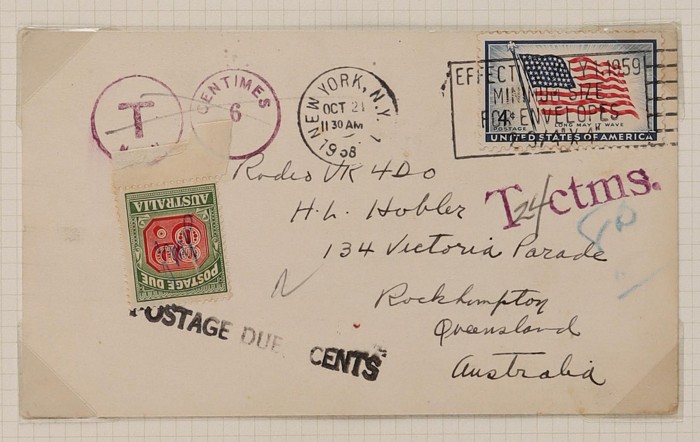 T
CENTIMES
6
NEW YORK, N.Y.
OCT 21
11 30 AM
1958
EFFECTIVE JULY 1, 1959
MINIMUM SIZE
FOR ENVELOPES
4¢
POSTAGE
LONG MAY IT WAVE
UNITED STATES OF AMERICA
Radio VK 4DO
H.L. Hobler
134 Victoria Parade
Rockhampton
Queensland
Australia
T 24 ctms.
8D
POSTAGE DUE
AUSTRALIA
POSTAGE DUE CENTS